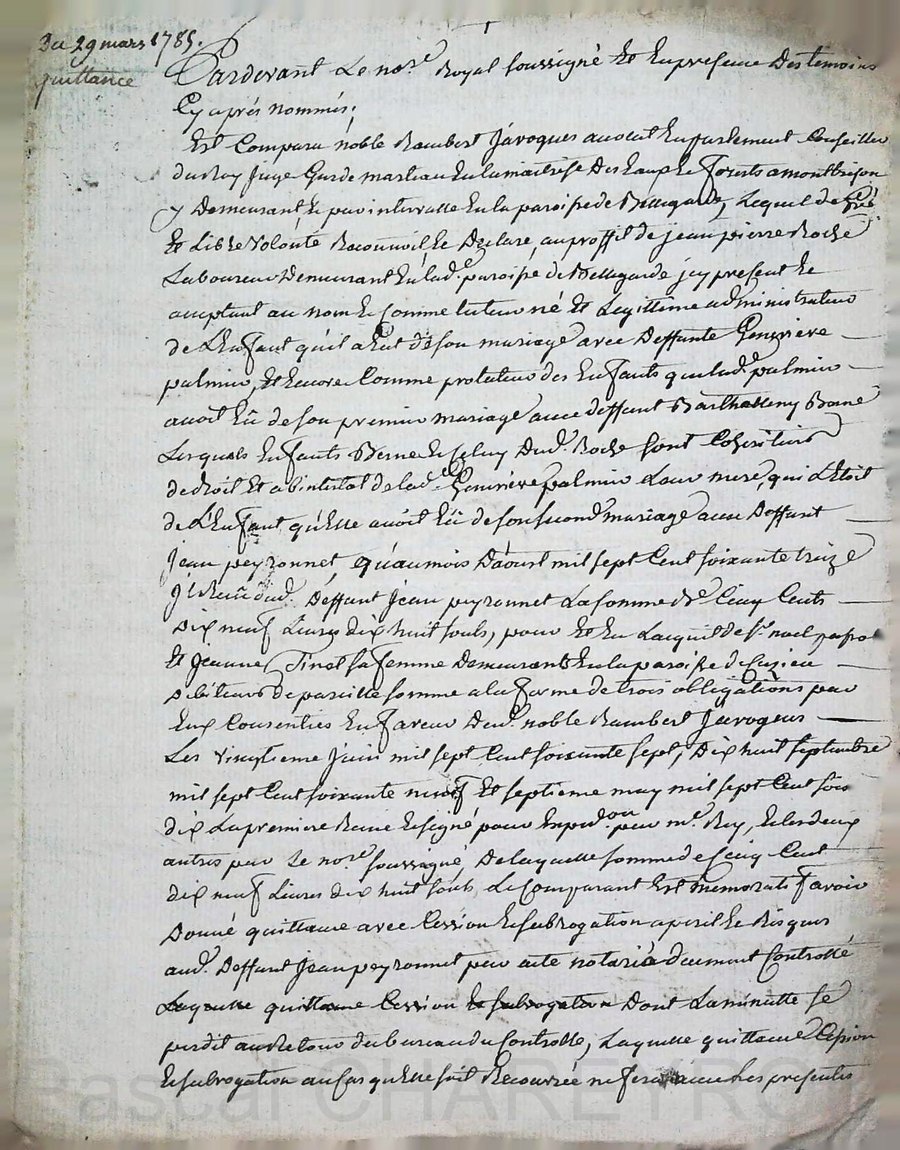 Du 29 mars 1785.
quittance
Pardevant Le no.re Royal soussigné Et En presence Des temoins
Cy aprés nommés;
Est Comparu noble Rambert Javogues avocat En parlement Conseiller
du Roy Juge Garde marteau En la maitrise Des Eaux Et forests a montbrison
y Demeurant Et par intervalle En la paroisse de Bellegarde, Lequel de gré
Et Libre volonté Reconnoit Et Declare, au proffit de jean pierre Roche
Laboureur Demeurant En lad.e paroisse de Bellegarde jcy present Et
acceptant au nom Et Comme tuteur né Et Legittime administrateur
de L'Enfant qu'il a Eut de son mariage avec Deffunte Genevieve
palmier, Et Encore Comme protuteur des Enfants que lad.e palmier
avoit Eü de son premier mariage avec deffunt Barthelemy Berne
Lesquels Enfants Berne Et Celuy Dud. Roche sont Coheritiers
de droit Et ab intestat de lad.e Genevieve palmier Leur mere, qui L'Etoit
de L'Enfant qu'Elle avoit Eü de son second mariage avec Deffunt
Jean peyronnet, qu'au mois D'aoust mil sept Cent soixante treize
Jl Reçeu dud. Deffunt Jean peyronnet La somme de Cinq Cents
Dix neuf Livres dix huit sols, pour Et En L'acquit de s.r noel
Et Jeanne sa femme Demeurants En la paroisse de Cuzieu
Debiteurs de pareille somme a la forme de trois obligations par
Eux Consenties En faveur Dud. noble Rambert Javogues
Les vingtieme Juin mil sept Cent soixante sept, Dix huit septembre
mil sept Cent soixante neuf Et septieme may mil sept Cent soix
dix La premiere Reçue Et signé pour Expedon par m.e Rey, Et les deux
autres par Le no.re soussigné, De laquelle somme de Cinq Cent
dix neuf Livres dix huit sols, Le Comparant Est memoratif avoir
Donné quittance avec Cession Et subrogation a peril Et Risques
aud. Deffunt Jean peyronnet par acte notarié deument Controllé
Laquelle quittance Cession Et subrogation Dont La minutte se
perdit au Retour du bureau du Controlle, Laquelle quittance Cession
Et subrogation au Cas qu'Elle soit Recouvrée ne fera avec Les presentes
Pascal CHAREYRON